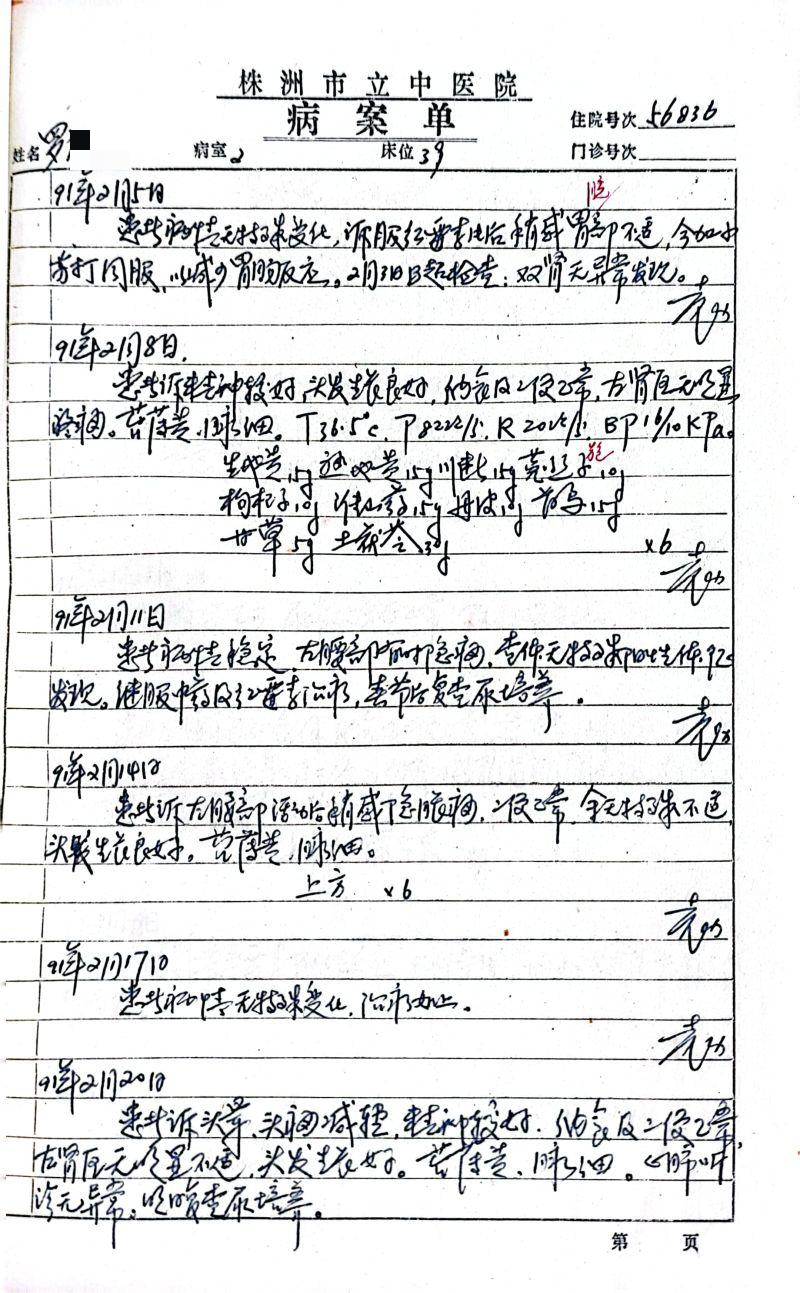 株洲市立中医院
病案单
住院号次 56836
姓名 罗 病室 2 床位 39 门诊号次
91年2月5日
脘
患者病情无特殊变化,诉服红霉素后稍感胃部不适,今加小
苏打同服,以减少胃肠反应。2月3日B超检查:双肾无异常发现。
91年2月8日.
患者诉精神较好,头发生长良好,纳食及二便正常,左肾区无明显
疼痛。苔薄黄,脉细。T36.5°C, P82次/分, R20次/分, BP16/10KPa。
生地黄15g 熟地黄15g 川断15g 菟丝子10g
枸杞子10g 15g 丹皮10g 首乌15g
甘草5g 土茯苓30g
×6
91年2月11日
患者病情稳定,左腰部有时隐痛,查体无特殊阳性体征
发现。继服中药及红霉素治疗,春节后复查尿培养。
91年2月14日
患者诉左腰部活动后稍感隐胀痛,二便正常,余无特殊不适,
头发生长良好。苔薄黄,脉细。
上方 ×6
91年2月17日
患者病情无特殊变化,治疗如上。
91年2月20日
患者诉头晕、头痛减轻,精神较好,纳食及二便正常,
左肾区无明显不适,头发生长好。苔薄黄、脉细。心肺听
诊无异常。明晨复查尿培养。
第 页